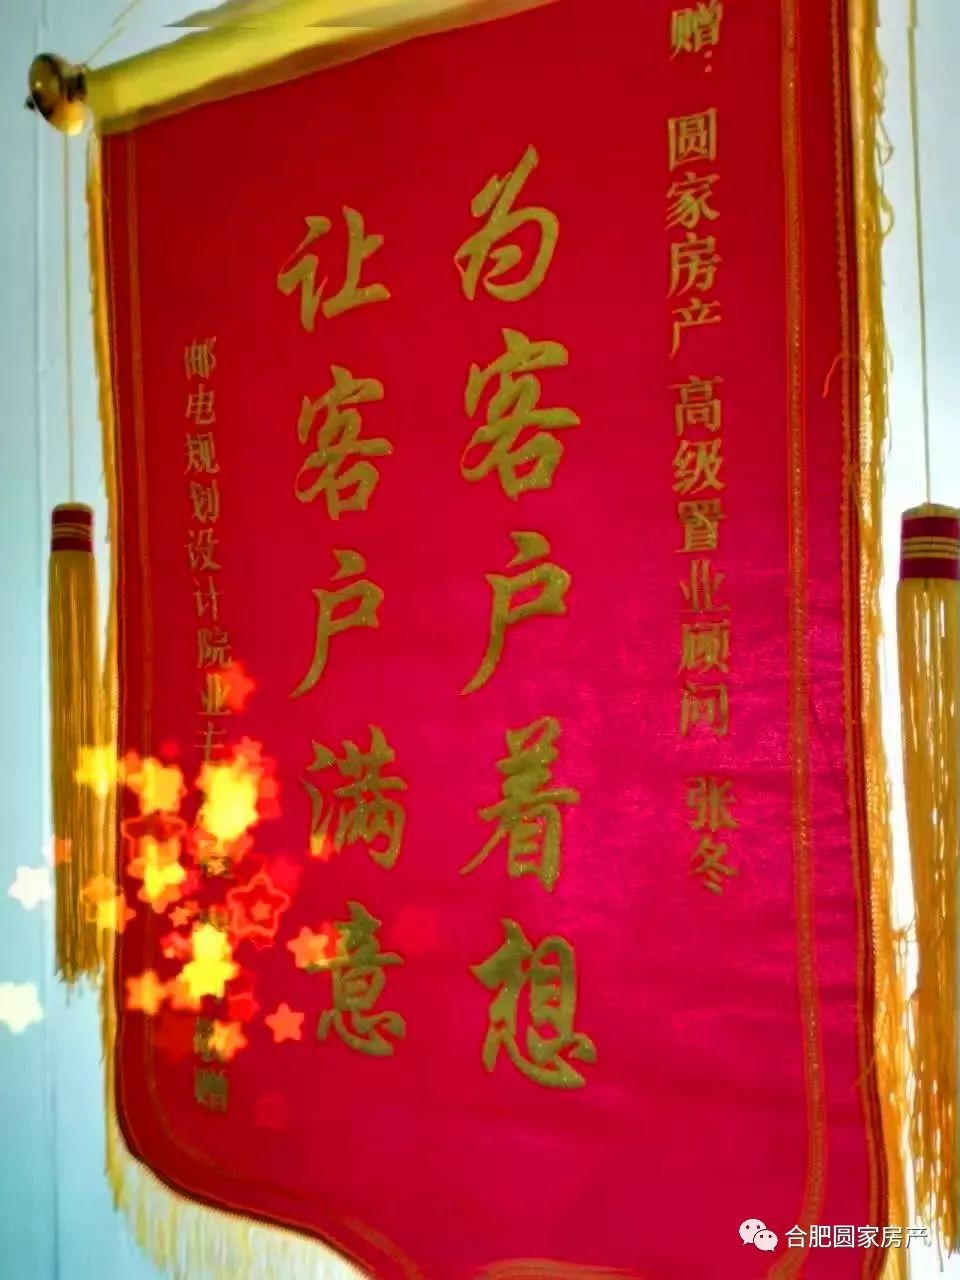 赠：圆家房产 高级置业顾问 张冬
为客户着想
让客户满意
邮电规划设计院业主
敬赠
合肥圆家房产